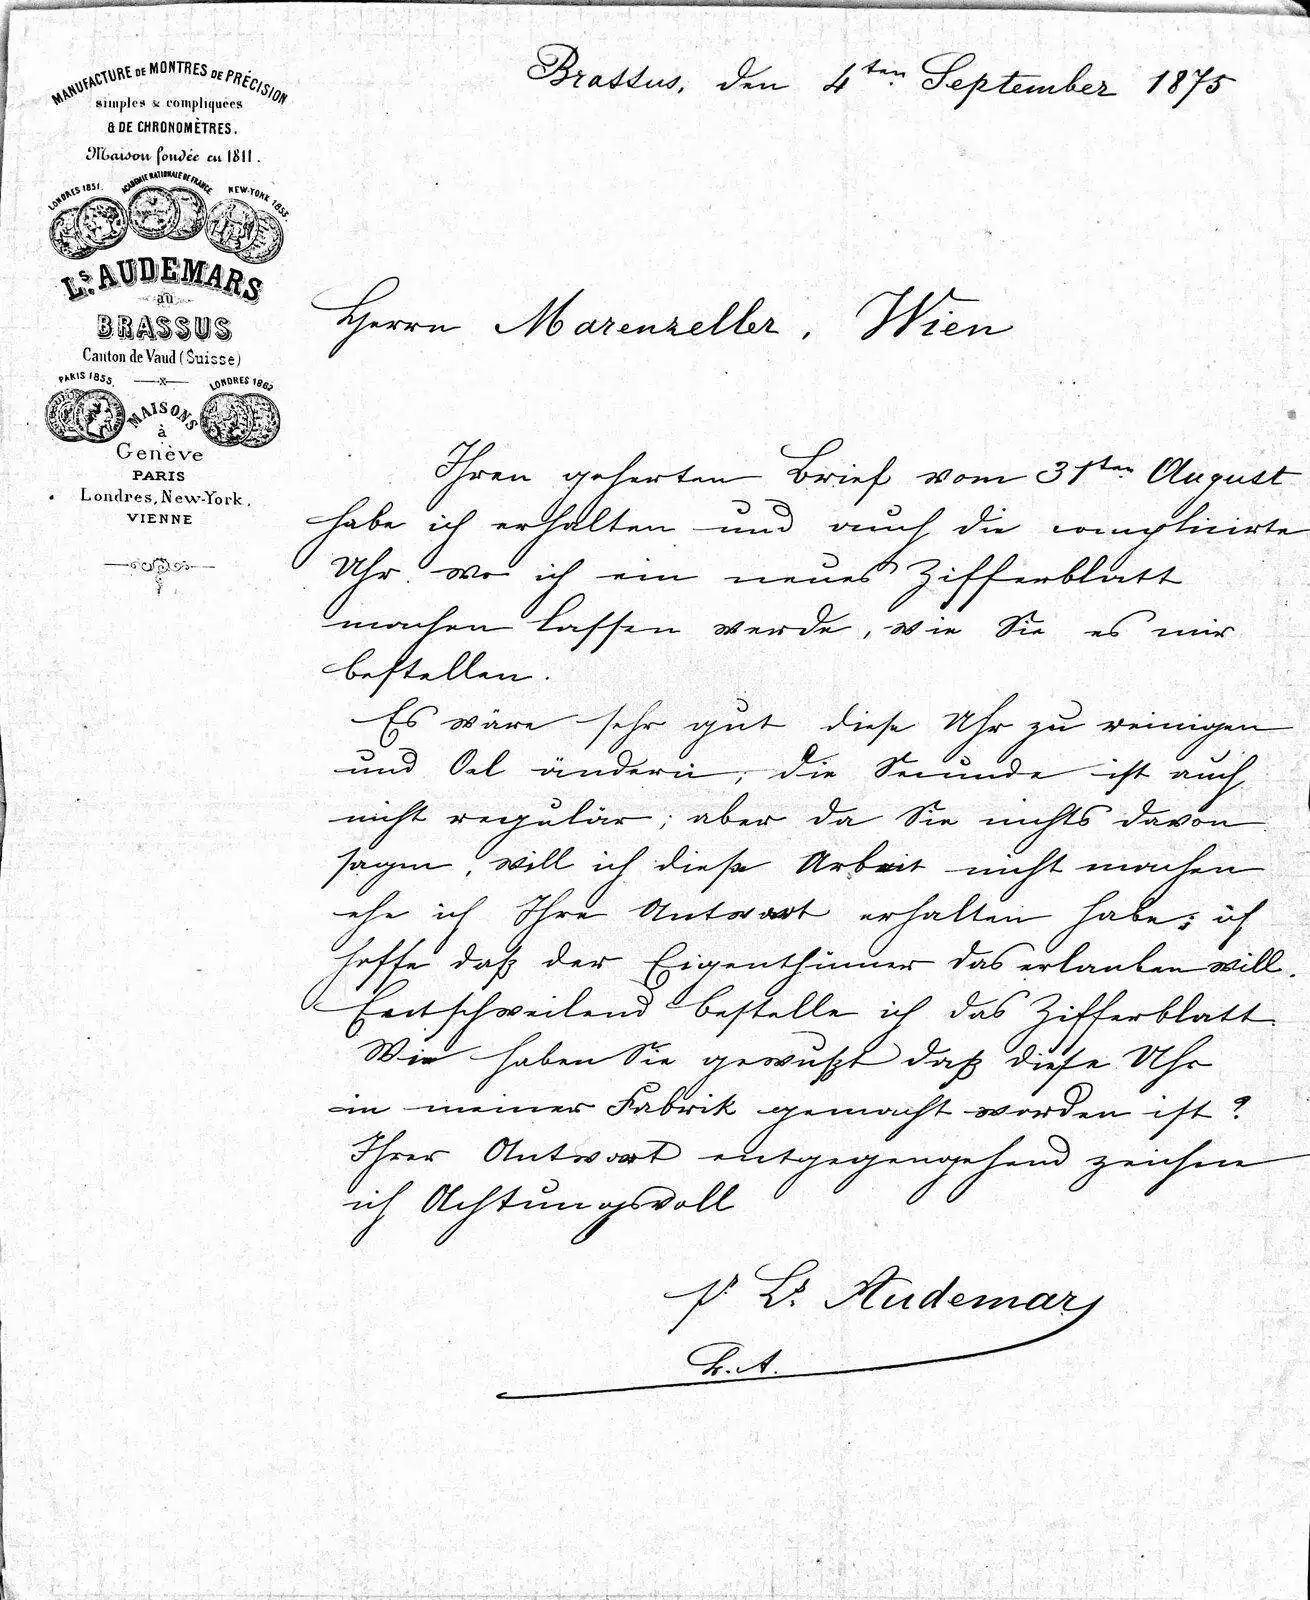 MANUFACTURE DE MONTRES DE PRÉCISION
simples & compliquées
& DE CHRONOMÈTRES.
Maison fondée en 1811.
LONDRES 1851.
ACADÉMIE NATIONALE DE FRANCE
NEW-YORK 1853.
Ls. AUDEMARS
au
BRASSUS
Canton de Vaud (Suisse)
PARIS 1855.
LONDRES 1862
MAISONS
à
Genève
PARIS
Londres, New-York.
VIENNE
Brassus, den 4ten September 1875
Herrn Marenzeller, Wien
Ihren geherten Brief vom 31ten August
habe ich erhalten und auch die complicirte
Uhr wo ich ein neues Zifferblatt
machen lassen werde, wie Sie es mir
bestellen.
Es wäre sehr gut diese Uhr zu reinigen
und Oel ändern, die Secunde ist auch
nicht regulär; aber da Sie nichts davon
sagen, will ich diese Arbeit nicht machen
ehe ich Ihre Antwort erhalten habe; ich
hoffe daß der Eigenthümer das erlauben will.
Entschweilend bestelle ich das Zifferblatt.
Wie haben Sie gewußt daß diese Uhr
in meiner Fabrik gemacht worden ist?
Ihrer Antwort entgegengehend zeichne
ich Achtungsvoll
p. Ls. Audemars
L. A.